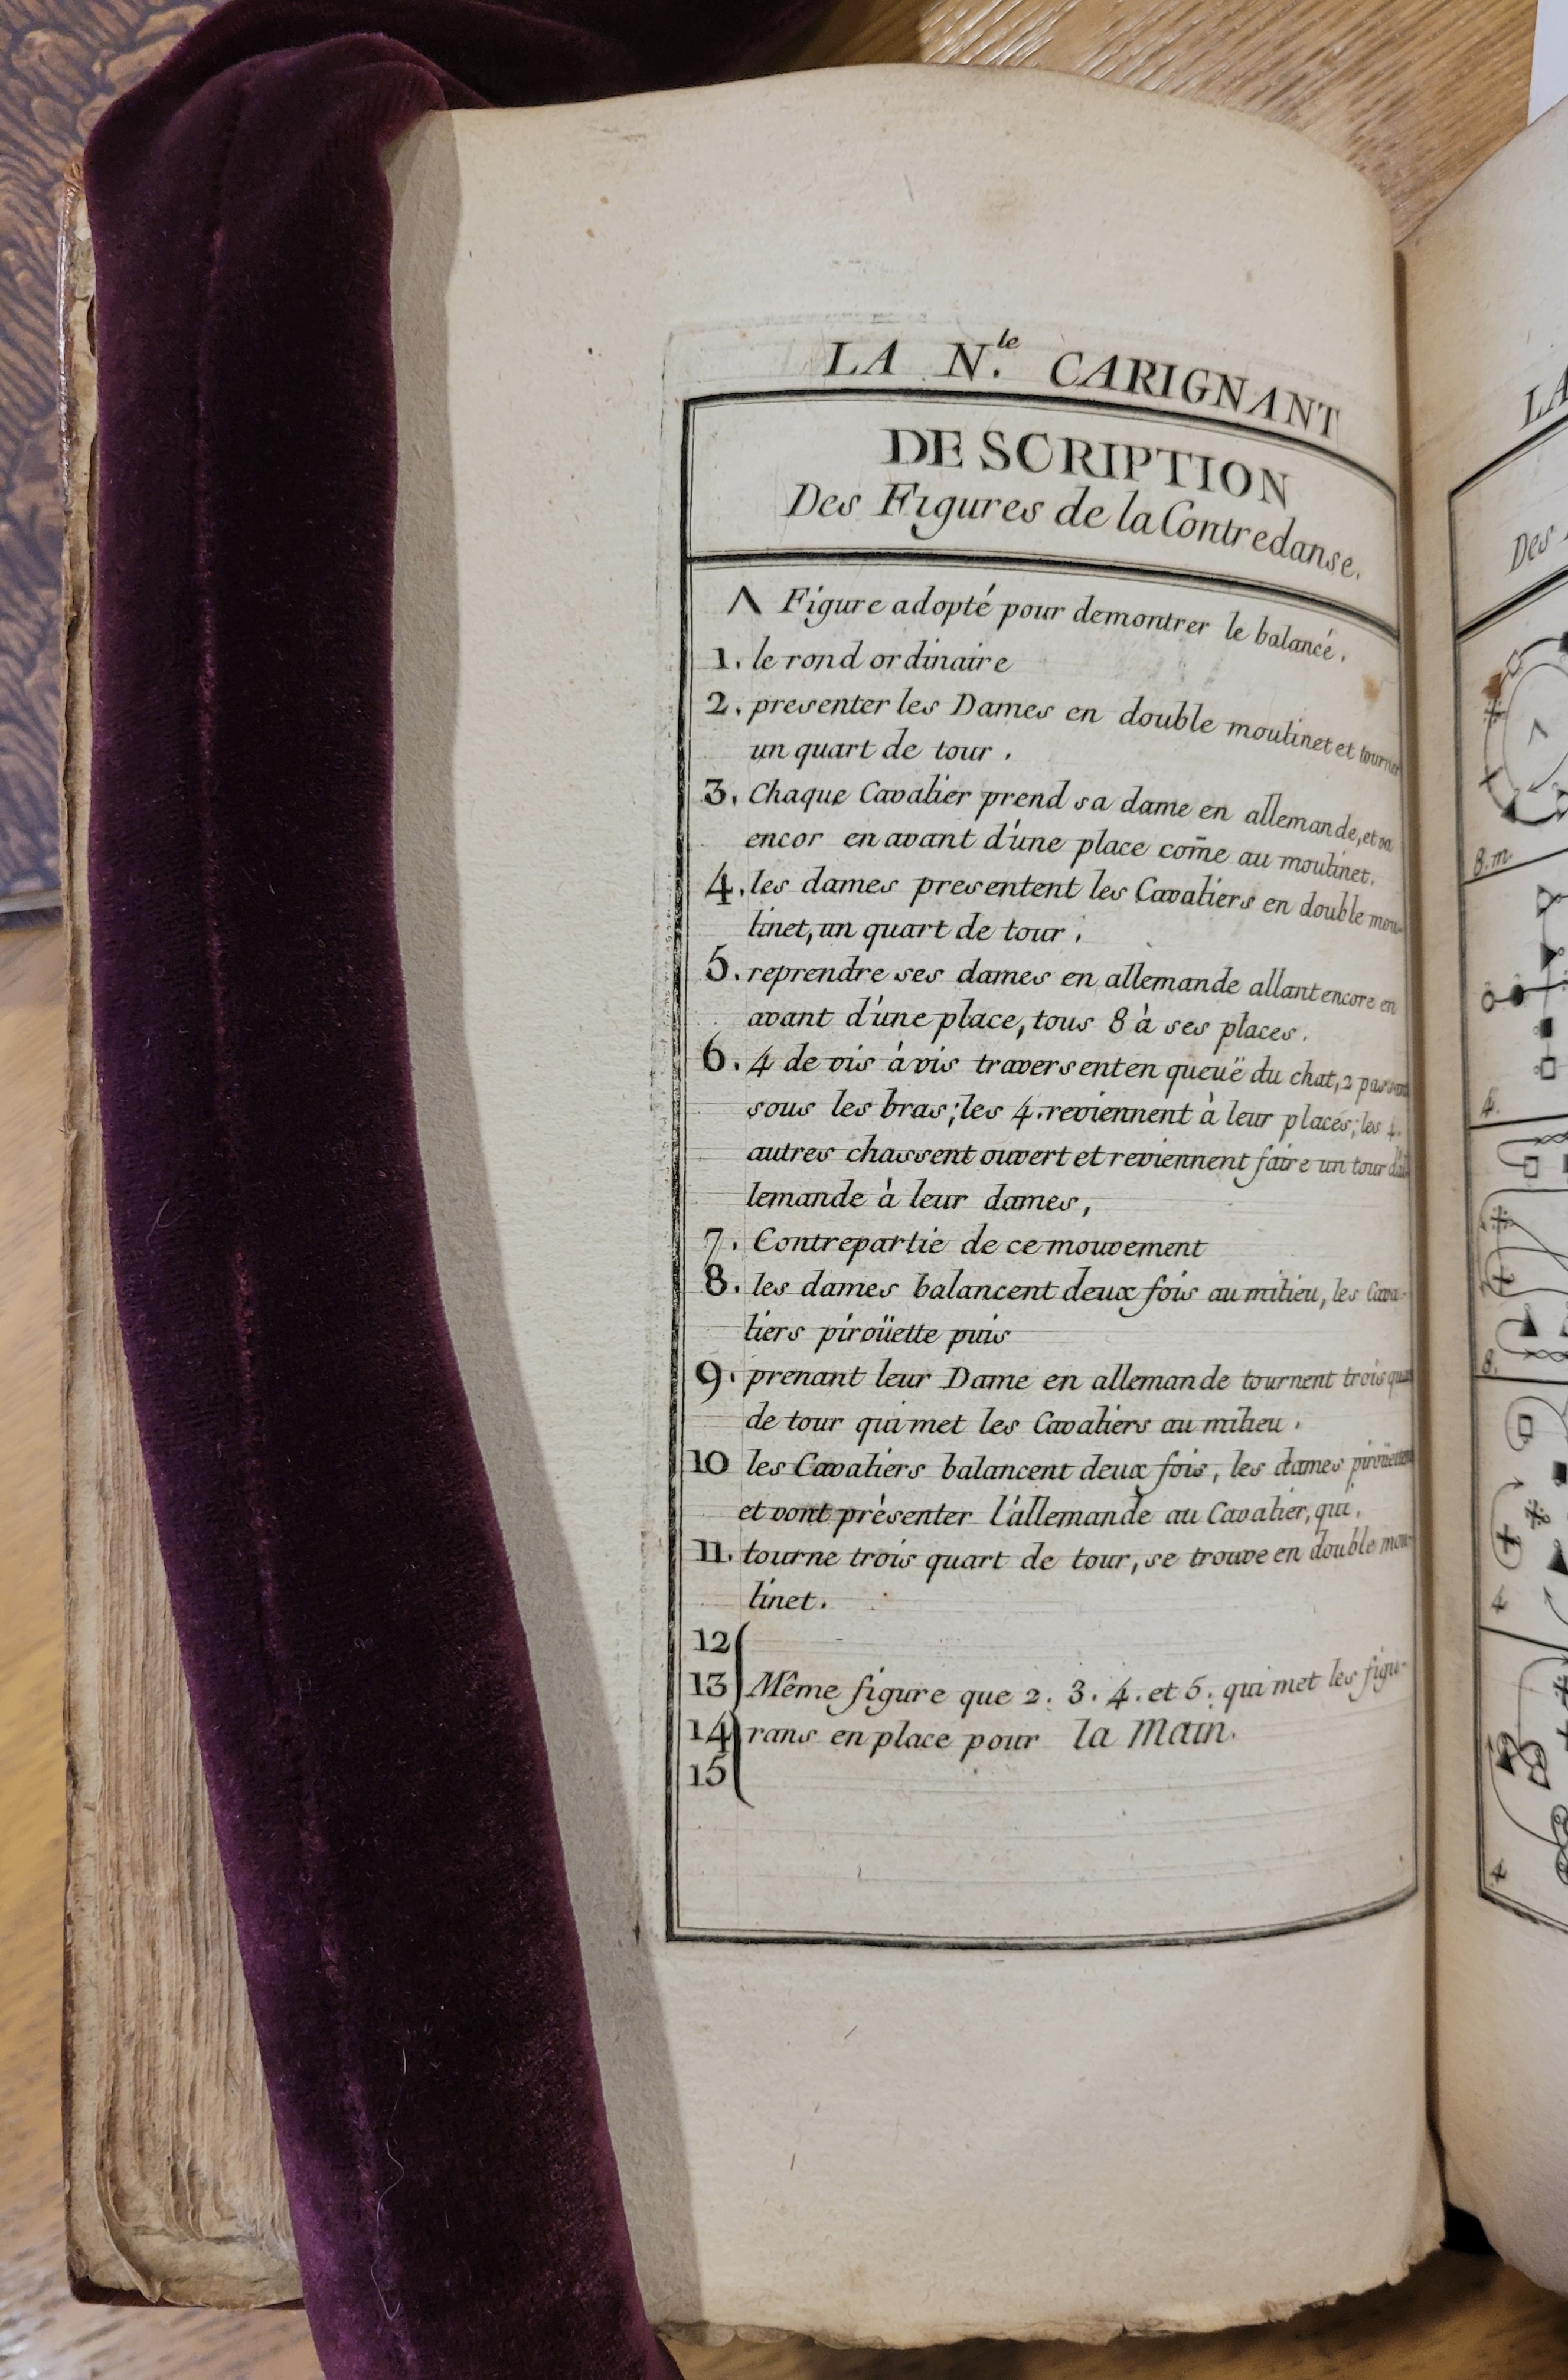 LA N.le CARIGNANT
DESCRIPTION
Des Figures de la Contredanse.
Λ Figure adopté pour demontrer le balancé.
1. le rond ordinaire
2. presenter les Dames en double moulinet et tourner
un quart de tour.
3. Chaque Cavalier prend sa dame en allemande, et va
encor en avant d'une place com̄e au moulinet.
4. les dames presentent les Cavaliers en double mou-
linet, un quart de tour;
5. reprendre ses dames en allemande allant encore en
avant d'une place, tous 8 à ses places.
6. 4 de vis à vis traversent en queuë du chat, 2 passent
sous les bras; les 4. reviennent à leur places; les 4.
autres chassent ouvert et reviennent faire un tour d'al
lemande à leur dames,
7. Contrepartie de ce mouvement
8. les dames balancent deux fois au milieu, les Cava-
liers piroüette puis
9. prenant leur Dame en allemande tournent trois
de tour qui met les Cavaliers au milieu.
10 les Cavaliers balancent deux fois, les dames piroüettent
et vont présenter l'allemande au Cavalier, qui,
11. tourne trois quart de tour, se trouve en double mou-
linet.
12
13 Même figure que 2. 3. 4. et 5. qui met les figu-
14 rans en place pour la Main.
15
LA
Des
7
8.m
4.
8.
4
4